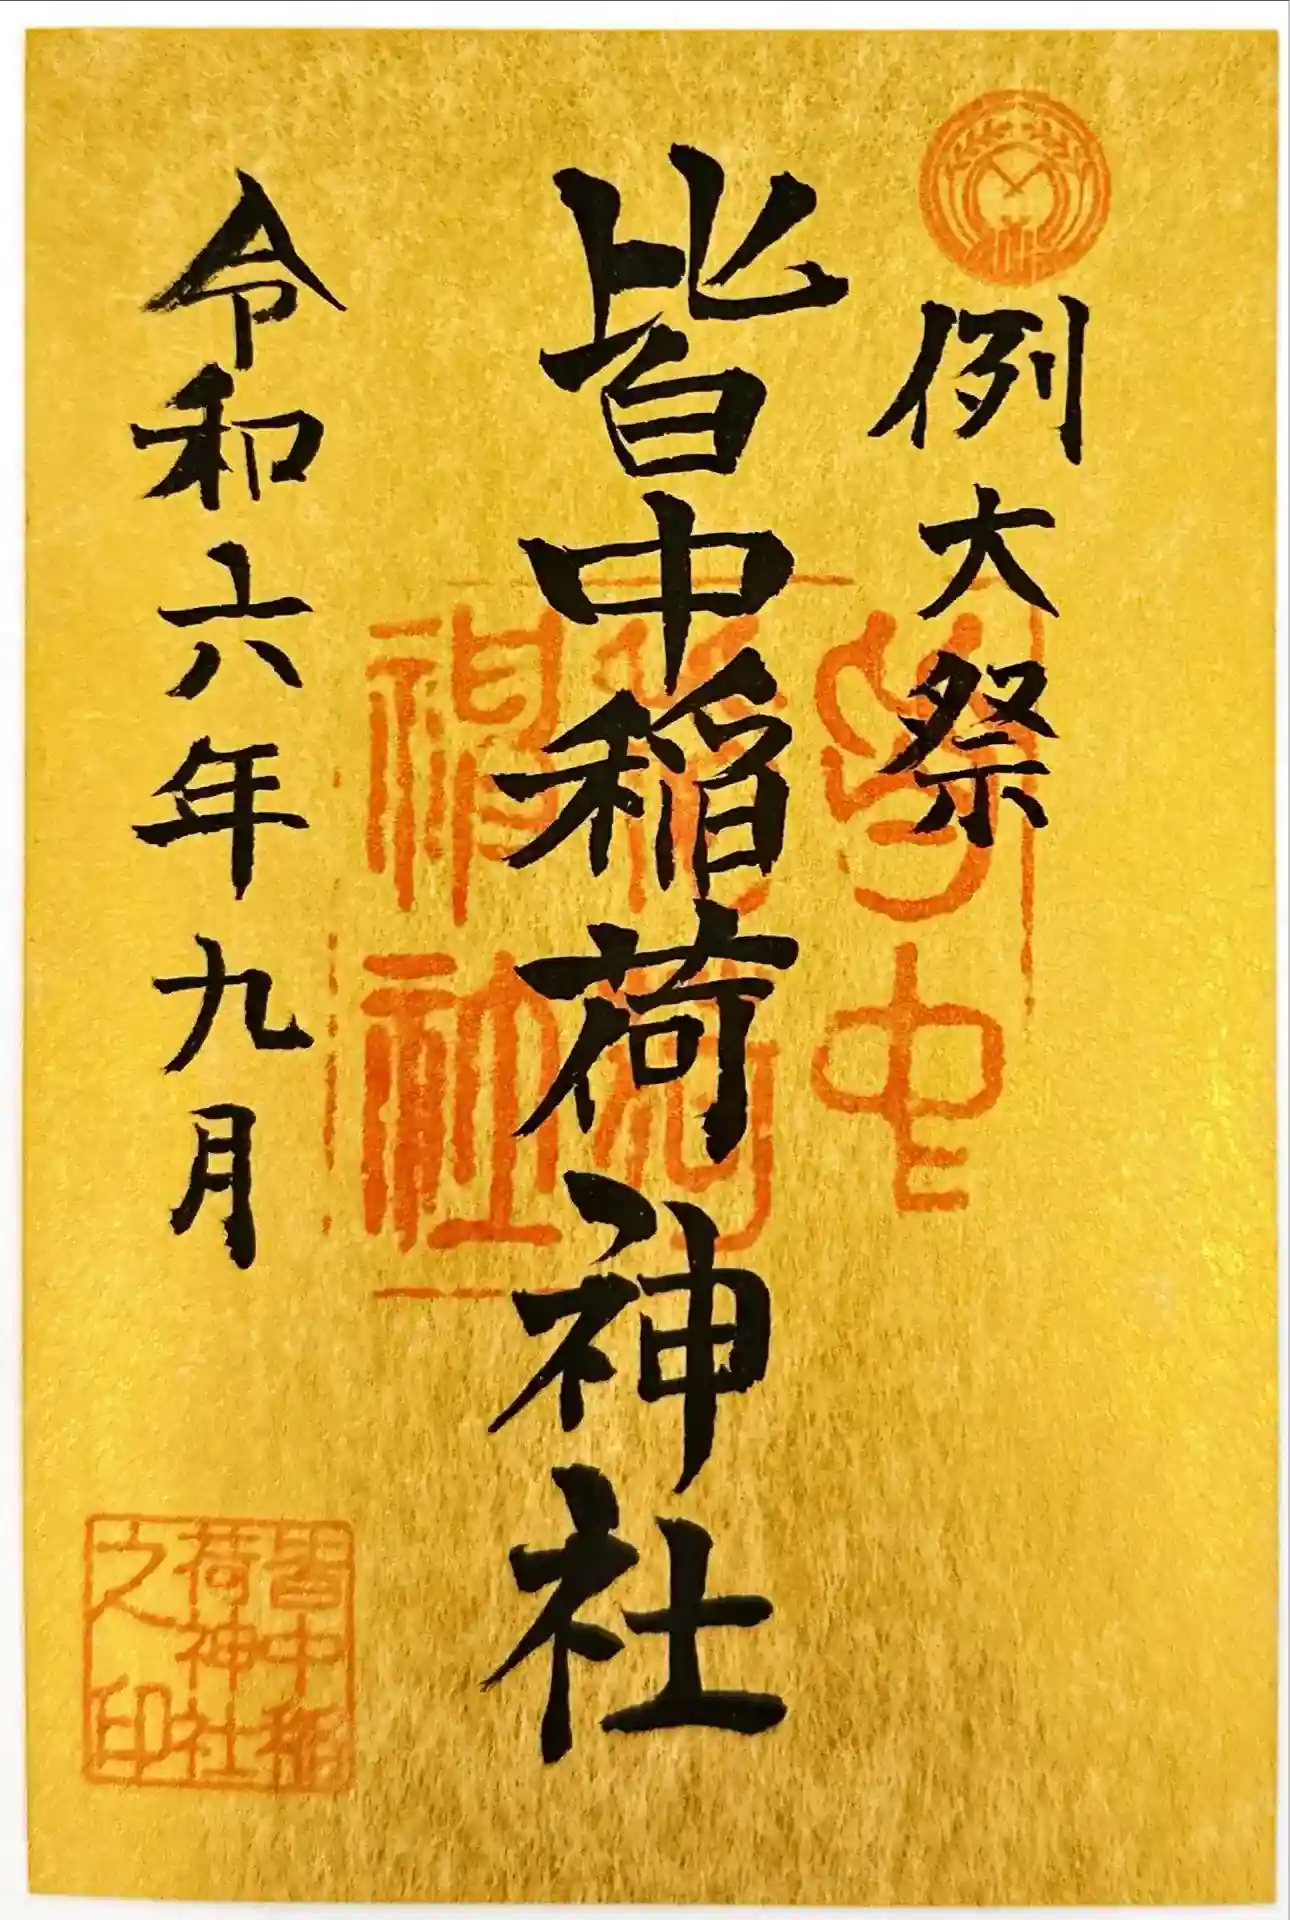 例大祭
皆中稲荷神社
令和六年九月
皆中
稲荷
神社
皆中稲
荷神社
之印